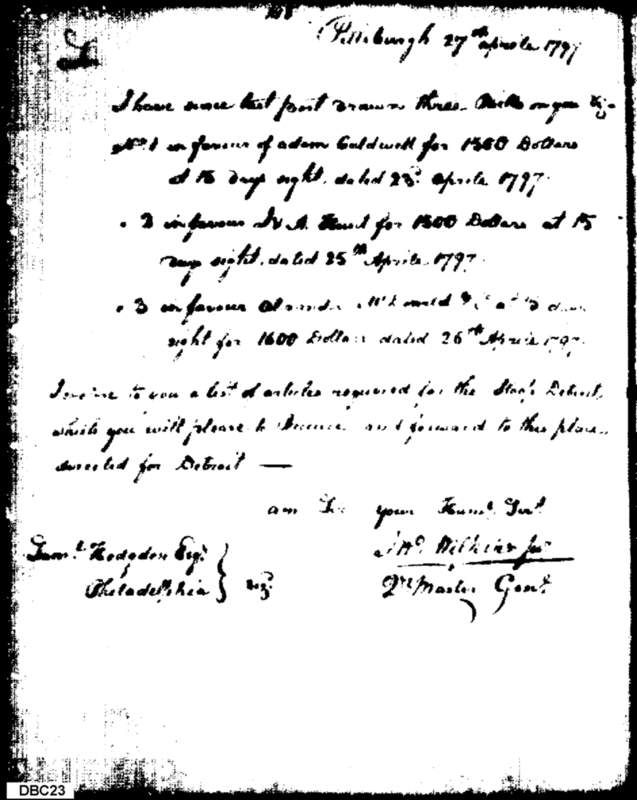 Pittsburgh 27th aprile 1797
I have since last post drawn three Bills on you Viz.
No. 1 in favour of adam Caldwell for 1500 Dollars
at 15 days sight, dated 23d. aprile 1797
" 2 in favour A. Hunt for 1500 Dollars at 15
days sight, dated 25th Aprile 1797
" 3 in favour McDonald at days
sight for 1600 Dollars dated 26th Aprile 1797
to you a list of articles required for the Ship Detroit,
which you will please to and forward to this place
directed for Detroit —
am Sir your Humb. Sert.
Jno. Wilkins Jur
Saml. Hodgdon Esqr.
Philadelphia
Qr. Master Genl.
DBC23